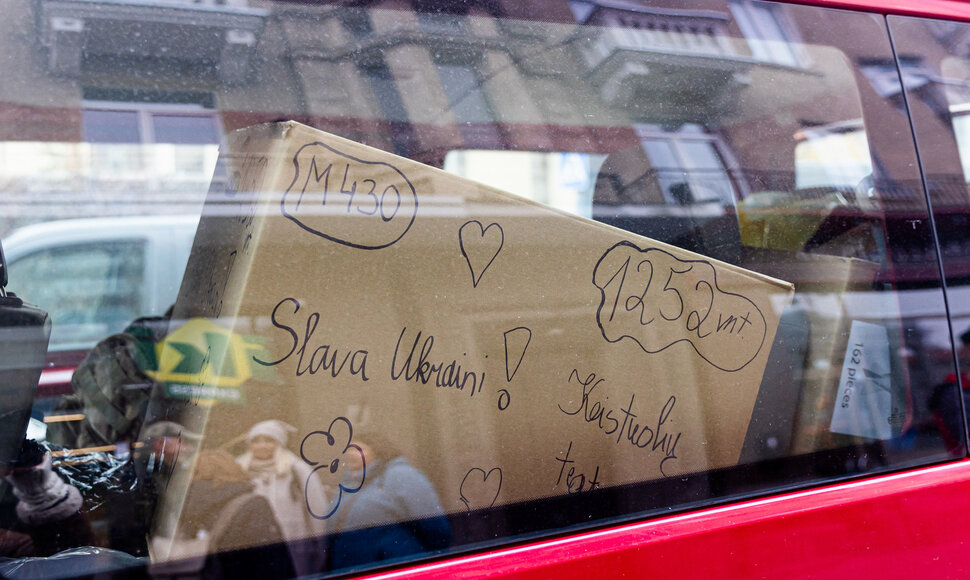 M430
1252 vnt
Slava Ukraini!
Keistuolių
teat
162 pieces